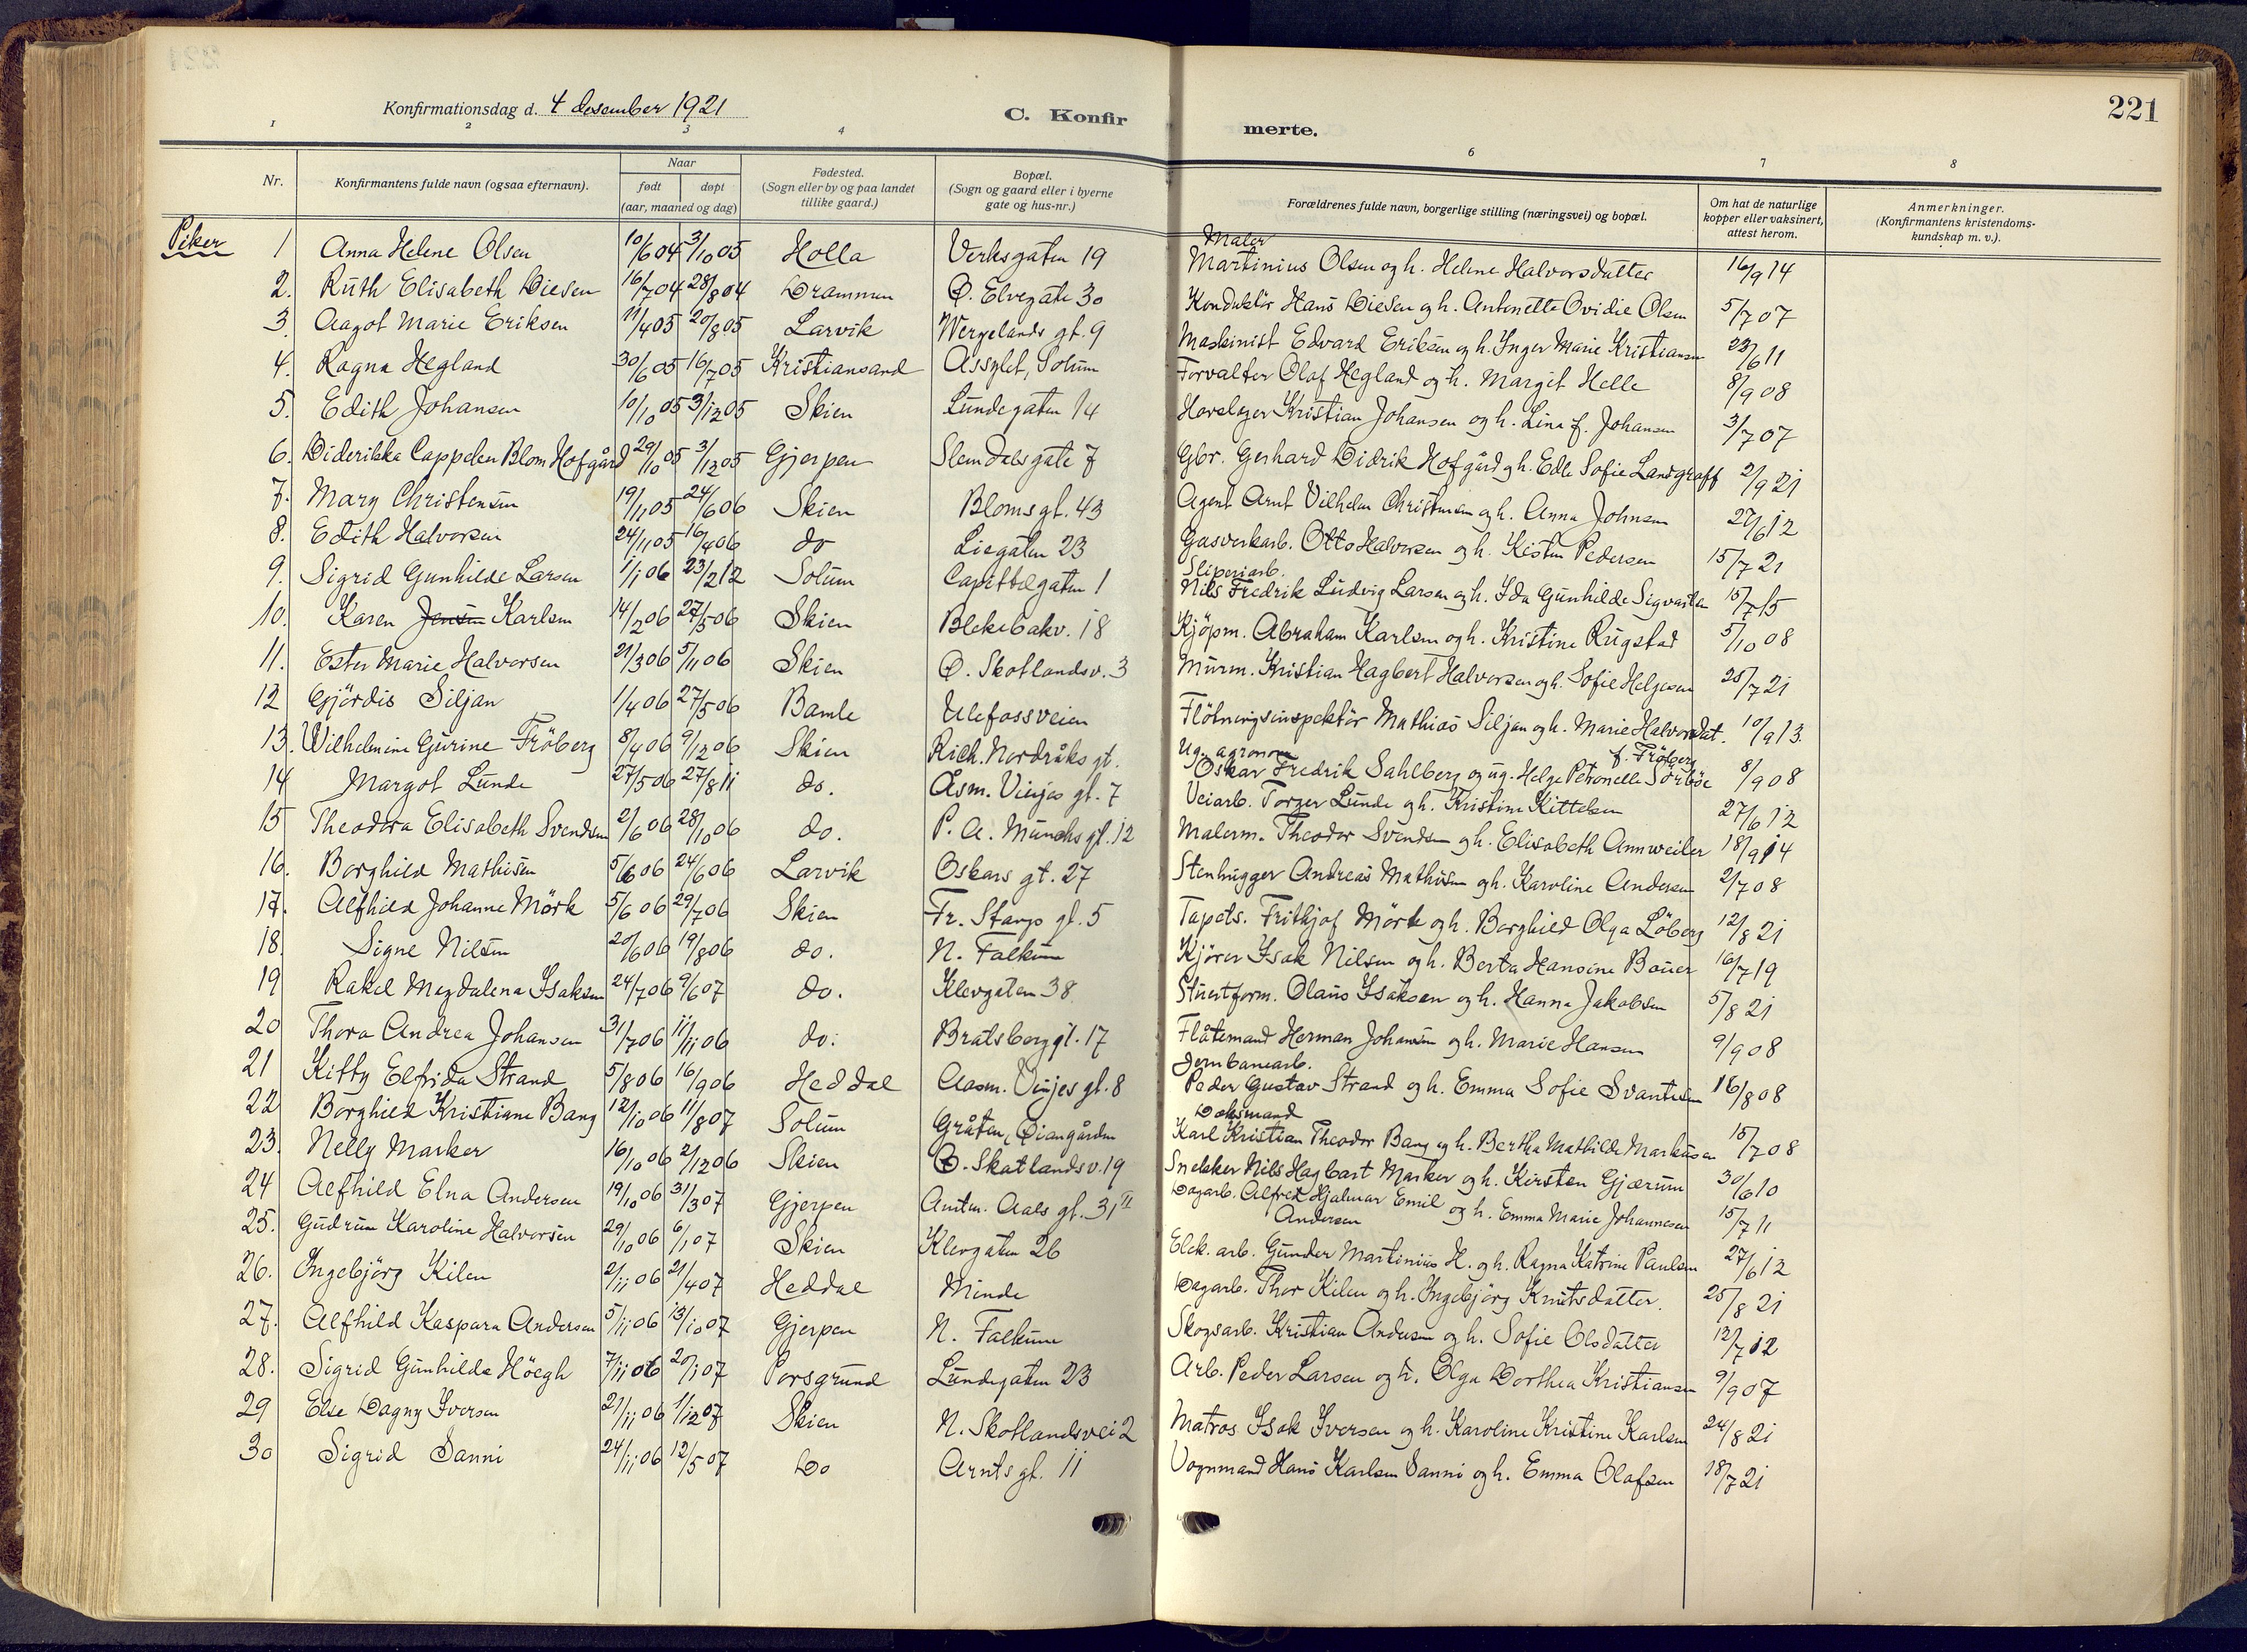 221
Konfirmationsdag d. 4 desember 1921
C. Konfirmerte.
1 2 3 4 6 7 8
Nr.
Konfirmantens fulde navn (ogsaa efternavn).
Naar
født døpt
(aar, maaned og dag)
Fødested.
(Sogn eller by og paa landet
tillike gaard.)
Bopæl.
(Sogn og gaard eller i byerne
gate og hus-nr.)
Forældrenes fulde navn, borgerlige stilling (næringsvei) og bopæl.
Om hat de naturlige
kopper eller vaksinert,
attest herom.
Anmerkninger.
(Konfirmantens kristendoms-
kundskap m. v.).
Piker
1 Anna Helene Olsen 10/6 04 3/10 05 Holla Verksgaten 19 Maler Martinius Olsen og h. Helene Halvorsdatter 16/9 14
2. Ruth Elisabeth Diesen 16/7 04 28/8 04 Drammen Ø. Elvegate 30 Konduktör Hans Diesen og h. Antonette Ovidie Olsen 5/7 07
3. Aagot Marie Eriksen 11/4 05 20/8 05 Larvik Wergelands gt. 9 Maskinist Edvard Eriksen og h. Inger Marie Kristiansen 23/6 11
4. Ragna Hegland 30/6 05 16/7 05 Kristiansand Assylet, Solum Forvalter Olaf Hegland og h. Margit Helle 8/9 08
5. Edith Johansen 10/10 05 3/12 05 Skien Lundegaten 14 Hovslager Kristian Johansen og h. Lina f. Johansen 3/7 07
6. Diderikka Cappelen Blom Hofgård 29/10 05 3/12 05 Gjerpen Slemdalsgate 7 Gbr. Gerhard Didrik Hofgård og h. Edle Sofie Landgraff 2/9 21
7. Mary Christensen 19/11 05 24/6 06 Skien Bloms gt. 43 Agent Arnt Vilhelm Christensen og h. Anna Johnsen 27/6 12
8. Edith Halvorsen 24/11 05 16/4 06 do Liegaten 23 Gasverkarb. Otto Halvorsen og h. Kisten Pedersen 15/7 21
9. Sigrid Gunhilde Larsen 1/1 06 23/2 12 Solum Capittelgaten 1 Sliperiarb. Nils Fredrik Ludvig Larsen og h. Ida Gunhilde Sigvartsen 15/7 15
10. Karen Jensen Karlsen 14/2 06 27/5 06 Skien Blekebakv. 18 Kjöpm. Abraham Karlsen og h. Kristine Rugstad 5/10 08
11. Ester Marie Halvorsen 21/3 06 5/11 06 Skien Ø. Skotlandsv. 3 Murm. Kristian Hagbert Halvorsen og h. Sofie Helgesen 25/7 21
12 Gjördis Siljan 1/4 06 27/5 06 Bamle Ulefossveien Flötningsinspektör Mathias Siljan og h. Marie Halvorsdat. 10/9 13.
13. Wilhelmine Gurine Fröberg 8/4 06 9/12 06 Skien Rich. Nordråks gt. Ug. agronom Oskar Fredrik Sahlberg og ug. Helga Petronelle Sörbøe f. Fröberg 8/9 08
14 Margot Lunde 27/5 06 27/8 11 do. Åsm. Vinjes gt. 7 Veiarb. Torger Lunde og h. Kristine Kittelsen 27/6 12
15 Theodora Elisabeth Svendsen 2/6 06 28/10 06 do. P. A. Munchs gt. 12 Malerm. Theodor Svendsen og h. Elisabeth Annweiler 18/9 14
16. Borghild Mathisen 5/6 06 24/6 06 Larvik Oskars gt. 27 Stenhugger Andreas Mathisen og h. Karoline Andersen 2/7 08
17. Alfhild Johanne Mörk 5/6 06 29/7 06 Skien Fr. Stangs gt. 5 Tapets. Frithjof Mörk og h. Borghild Olga Löberg 12/8 21
18. Signe Nilsen 20/6 06 19/8 06 do. N. Falkum Kjörer Isak Nilsen og h. Berta Hansine Bauer 16/7 19
19 Rakel Magdalena Isaksen 24/7 06 9/6 07 do. Klevgaten 38 Stuertform. Olaus Isaksen og h. Hanna Jakobsen 5/8 21
20 Thora Andrea Johansen 31/7 06 11/11 06 do. Bratsberggt. 17 Flåtemand Herman Johansen og h. Marie Hansen 9/9 08
21 Kitty Elfrida Strand 5/8 06 16/9 06 Heddal Aasm. Vinjes gt. 8 Jernbanearb. Peder Gustav Strand og h. Emma Sofie Svantesen 16/8 08
22 Borghild Kristiane Bang 12/10 06 11/8 07 Solum Gråten, Øiangården Boksmand Karl Kristian Theodor Bang og h. Bertha Mathilde Markusen 15/7 08
23. Nelly Marker 16/10 06 2/12 06 Skien Ø. Skotlandsv. 19 Snekker Nils Hagbart Marker og h. Kirsten Gjærum 30/6 10
24 Alfhild Elna Andersen 19/10 06 31/3 07 Gjerpen Amtm. Aals gt. 31 II Dagarb. Alfred Hjalmar Emil Andersen og h. Emma Marie Johannesen 15/7 11
25. Gudrun Karoline Halvorsen 29/10 06 6/1 07 Skien Klevgaten 26 Elek. arb. Gunder Martinius H. og h. Ragna Katrine Paulsen 27/6 12
26. Ingebjörg Kilen 2/11 06 21/4 07 Heddal Minde Dagarb. Thor Kilen og h. Ingebjörg Knutsdatter. 25/8 21
27. Alfhild Kaspara Andersen 5/11 06 13/10 07 Gjerpen N. Falkum Skogsarb. Kristian Andersen og h. Sofie Olsdatter 12/7 12
28. Sigrid Gunhilda Höegh 7/11 06 20/1 07 Porsgrund Lundegaten 23 Arb. Peder Larsen og h. Olga Dorthea Kristiansen 9/9 07
29 Else Dagny Iversen 21/11 06 1/12 07 Skien N. Skotlandsvei 2 Matros Isak Iversen og h. Karoline Kristine Karlsen 24/8 21
30 Sigrid Sanni 24/11 06 12/5 07 Do Arnts gt. 11 Vognmand Hans Karlsen Sanni og h. Emma Olafsen 18/7 21